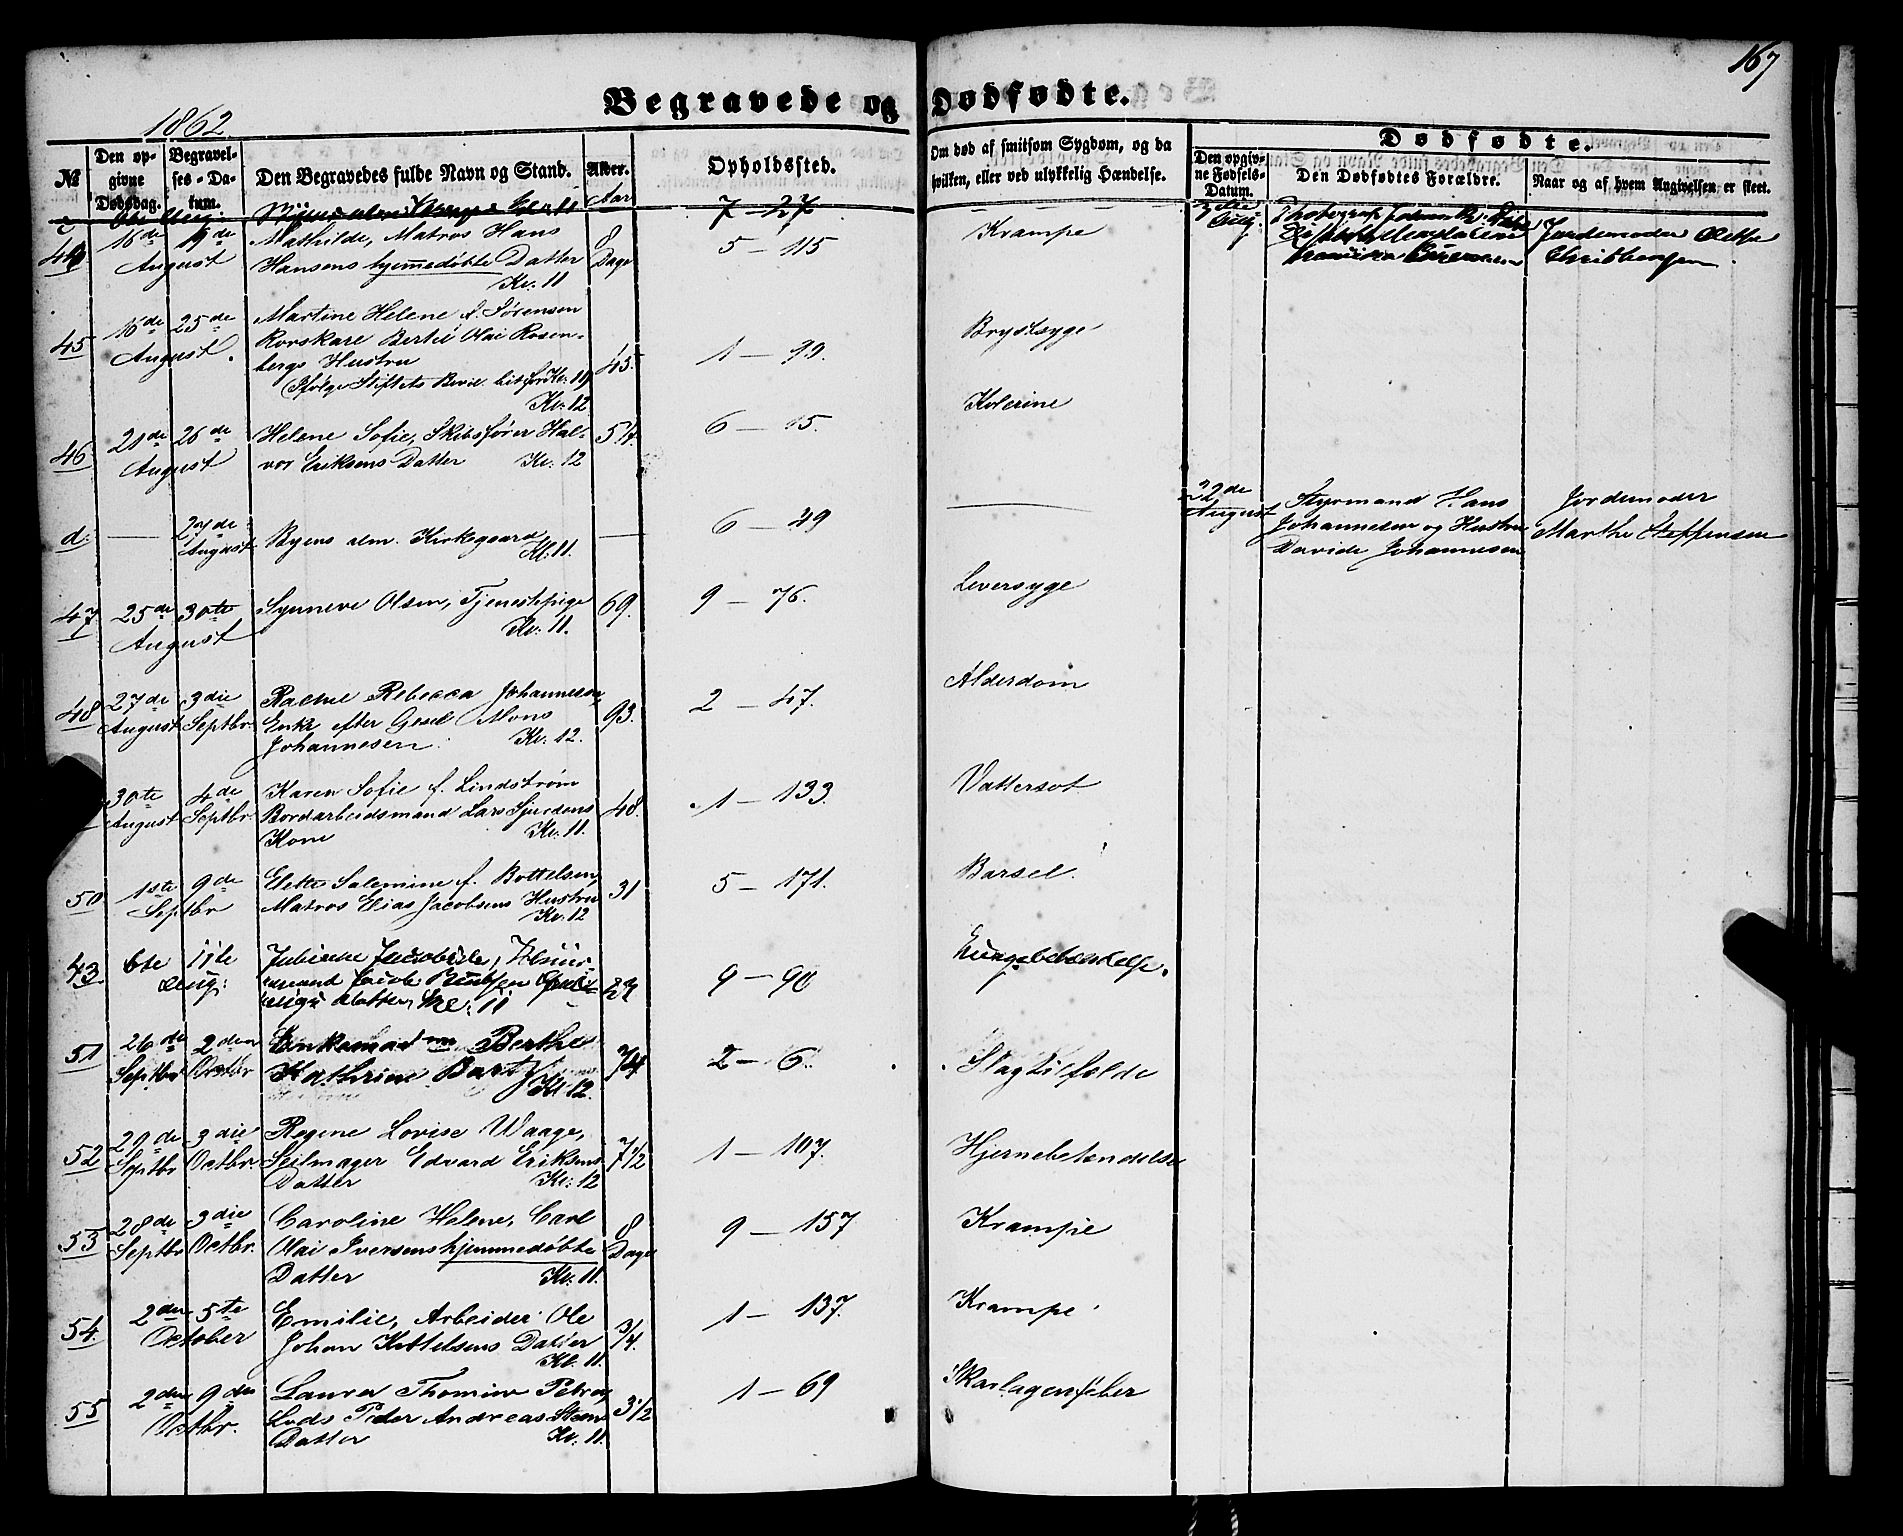 167
Begravede og Dødfødte.
1862
№
Den opgivne Dødsdag.
Begravelses-Datum.
Den Begravedes fulde Navn og Stand.
Alder.
Opholdssted.
Om død af smitsom Sygdom, og da hvilken, eller ved ulykkelig Hændelse.
Dødfødte.
Den opgivne Fødsels-Datum.
Den Dødfødtes Forældre.
Naar og af hvem Angivelsen er skeet.
Aar
7 - 27
Jordemoder
Christensen
44 16de 19de Mathilde, Matros Hans 8 5 - 115 Krampe
August Hansens hjemmedøbte Datter Dage
Kl: 11
45 16de 25de Martine Helene f. Sørensen 45. 1 - 99. Brystsyge
August. Rorskarl Bertil Olai Rosen-
bergs Hustru
(Ifølge Stiftets Bevil.
Kl: 12
46 21de 26de Helene Sofie, Skibsfører Hal- 54. 6 - 15. Kolerine
August vor Eriksens Datter Kl: 12
d: — 27de Byens alm. Kirkegaard — 6 - 49 — 22de Styrmand Hans Jordemoder
August Kl: 11. August Johannesen og Hustru Marthe Steffensen
Davide Johannesen
47 25de 30te Synneve Olsen, Tjenestepige 69. 9 - 76. Leversyge
August Kl: 11.
48 27de 3die Rachel Rebecca Johannesen, 93. 2 - 47. Alderdom
August Septbr. Enke efter Gesel Mons
Johannesen. Kl: 12.
30te 4de Karen Sofie f. Lindstrøm 48. 1 - 133. Vattersot
August Septbr. Bordarbeidsmand Lars Sjurdsens
Kone Kl: 11.
50 1ste 9de Elette Salemine f. Bottelsen, 31 5 - 171. Barsel.
Septbr Matros Elias Jacobsens Hustru
Kl: 12
43 6te 11te 9 - 90 Lungebetændelse.
Aug: Datter, Kl: 11
51 26de 2den Enkemadme Berthe 74 2 - 6. Slagtilfælde
Septbr Octbr Kathrine Bart
Kl 12.
52 29de 3die Regine Lovise Waage, 7 1/2 1 - 107. Hjernebetændelse
Septbr Octbr Seilmager Edvard Eriksens
Datter Kl: 12
53 28de 3die Caroline Helene, Carl 8 9 - 157 Krampe
Septbr Octbr. Olai Iversens hjemmedøbte Dage
Datter Kl: 11.
54. 2den 5te Emilie, Arbeider Ole 3/4. 1 - 137. Krampe
October Johan Kittelsens Datter
Kl. 11.
55 2den 9de Laura Thomine Petrea, 3 1/2 1 - 69 Skarlagensfeber
Octbr. Lods Peder Andreas Steens
Datter Kl. 11.